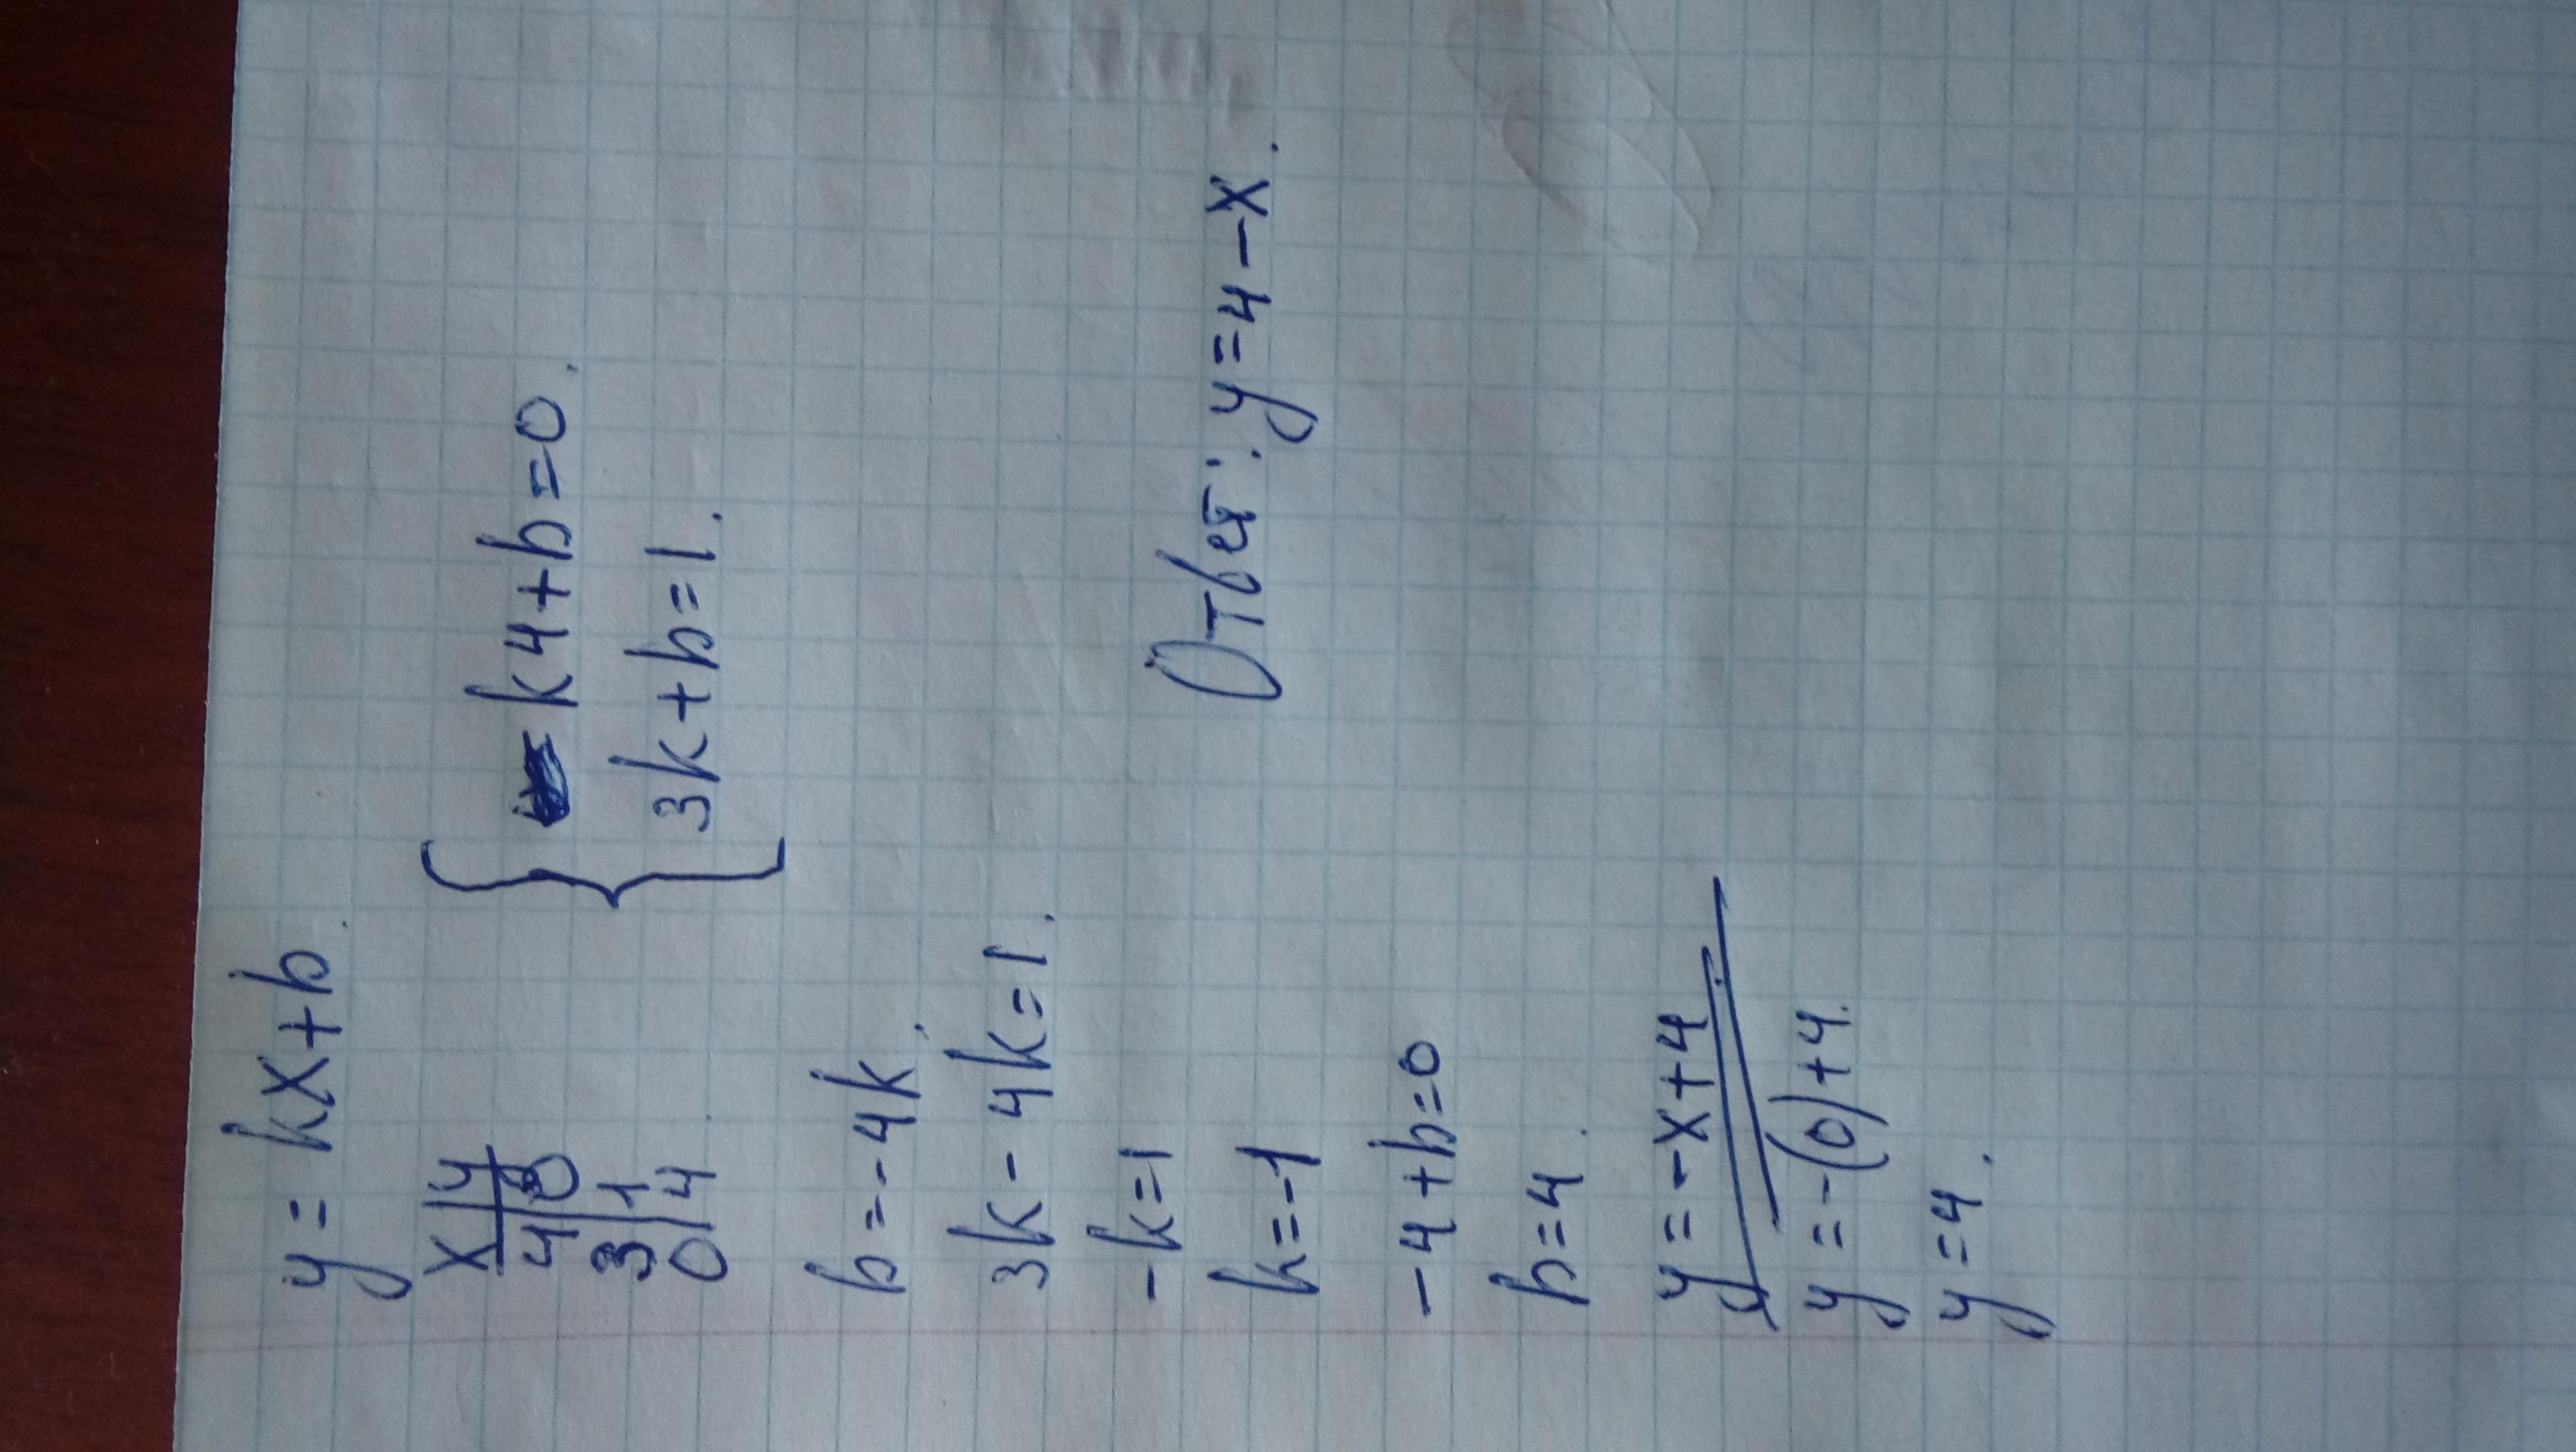 y = kx+b.
x | y
4 | 0
3 | 1
0 | 4
k4+b=0.
3k+b=1.
b=-4k.
3k-4k=1.
-k=1
k=-1
-4+b=0
b=4.
y=-x+4
y=-(0)+4.
y=4.
Ответ: y=4-x.